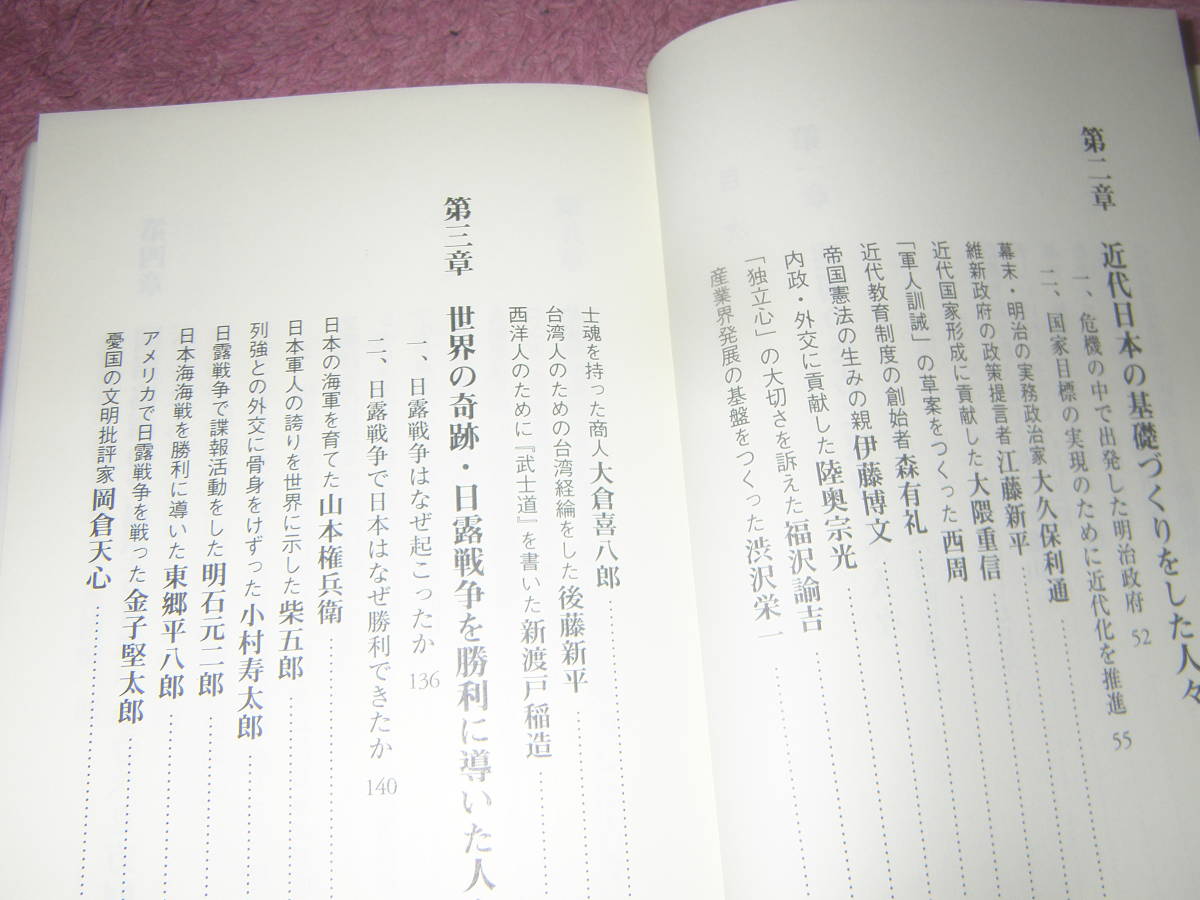 第二章　近代日本の基礎づくりをした人々
一、危機の中で出発した明治政府 52
二、国家目標の実現のために近代化を推進 55
幕末・明治の実務政治家 大久保利通
維新政府の政策提言者 江藤新平
近代国家形成に貢献した 大隈重信
「軍人訓誡」の草案をつくった 西周
近代教育制度の創始者 森有礼
帝国憲法の生みの親 伊藤博文
内政・外交に貢献した 陸奥宗光
「独立心」の大切さを訴えた 福沢諭吉
産業界発展の基盤をつくった 渋沢栄一
士魂を持った商人 大倉喜八郎
台湾人のための台湾経綸をした 後藤新平
西洋人のために『武士道』を書いた 新渡戸稲造
第三章　世界の奇跡・日露戦争を勝利に導いた人
一、日露戦争はなぜ起こったか 136
二、日露戦争で日本はなぜ勝利できたか 140
日本の海軍を育てた 山本権兵衛
日本軍人の誇りを世界に示した 柴五郎
列強との外交に骨身をけずった 小村寿太郎
日露戦争で諜報活動をした 明石元二郎
日本海海戦を勝利に導いた 東郷平八郎
アメリカで日露戦争を戦った 金子堅太郎
憂国の文明批評家 岡倉天心